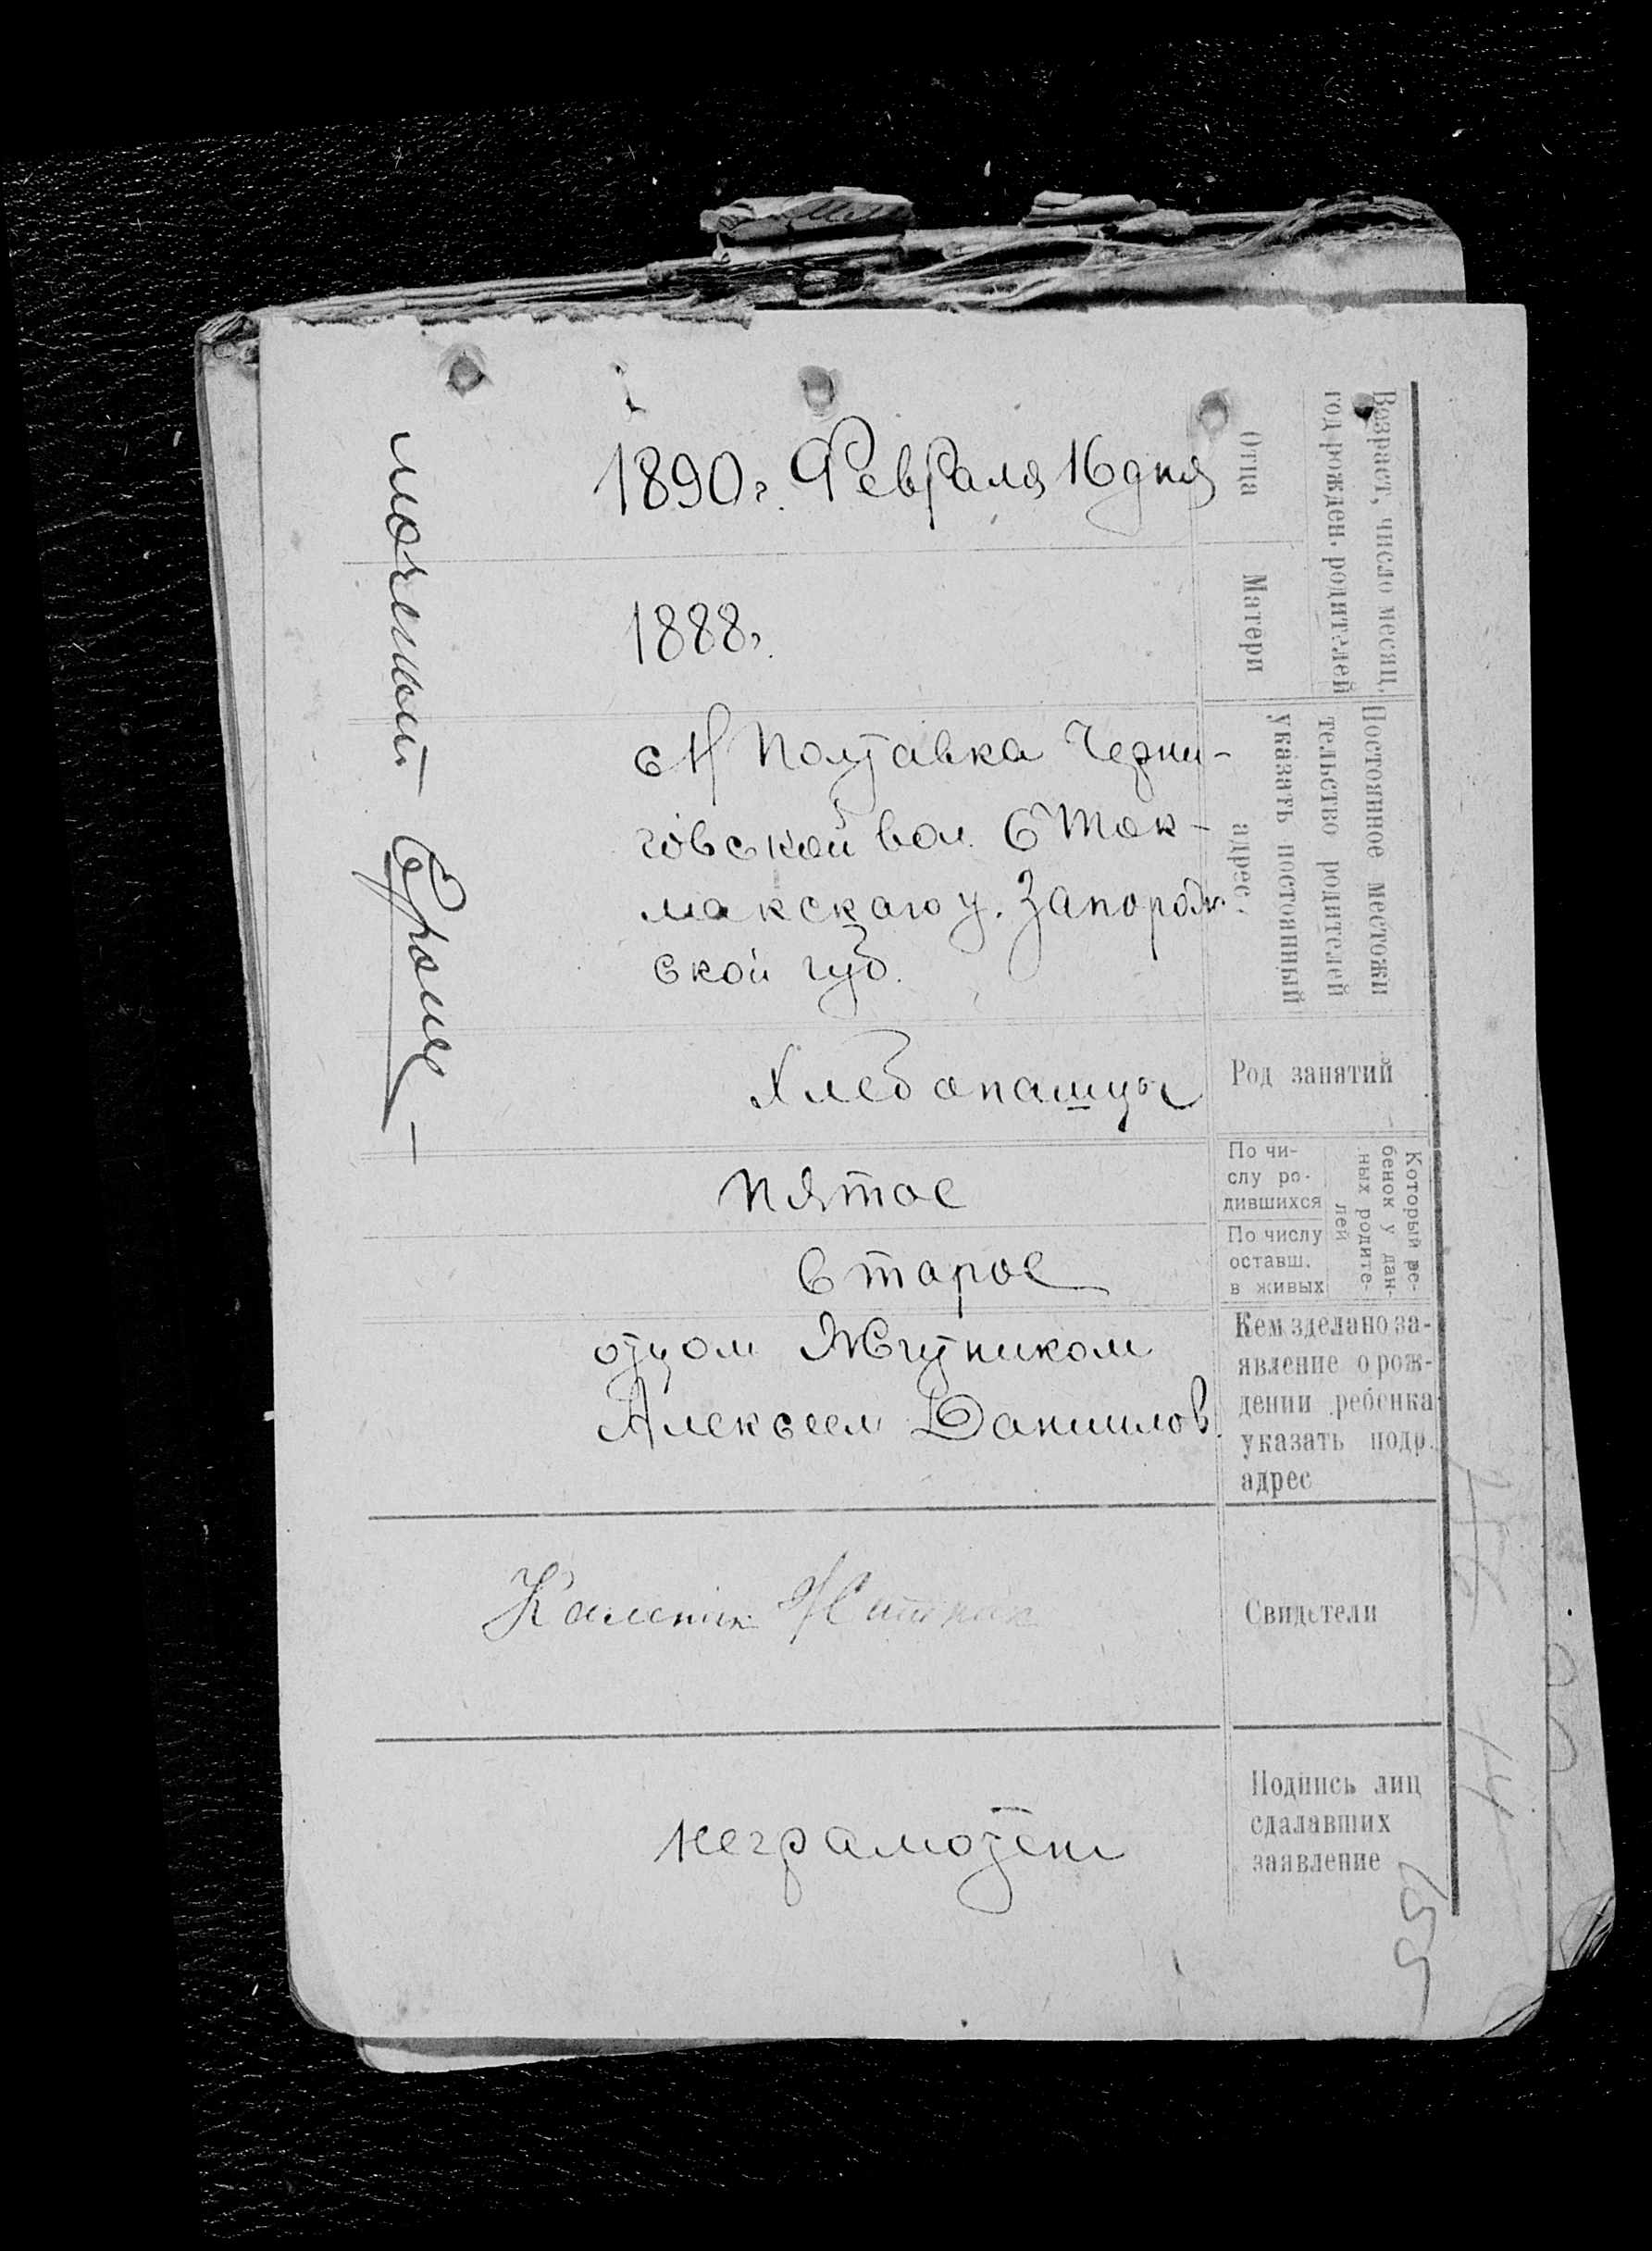 Возраст, число месяц,
год рожден. родителей
Отца
1890 г. Февраля 16 дня
Матери
1888 г.
Постоянное местожи
тельство родителей
указать постоянный
адрес.
с Н Полтавка Черни-
говской вол. Б Ток-
макскаго у. Запорож
ской губ.
Род занятий
Хлебопашцы
Который ре-
бенок у дан-
ных родите-
лей
По чи-
слу ро-
дившихся
пятое
По числу
оставш.
в живых
второе
Кем зделано за-
явление о рож-
дении ребенка
указать подр.
адрес
отцом Жгутиком
Алексеем Данилов.
Свидетели
Подпись лиц
сдалавших
заявление
неграмотен